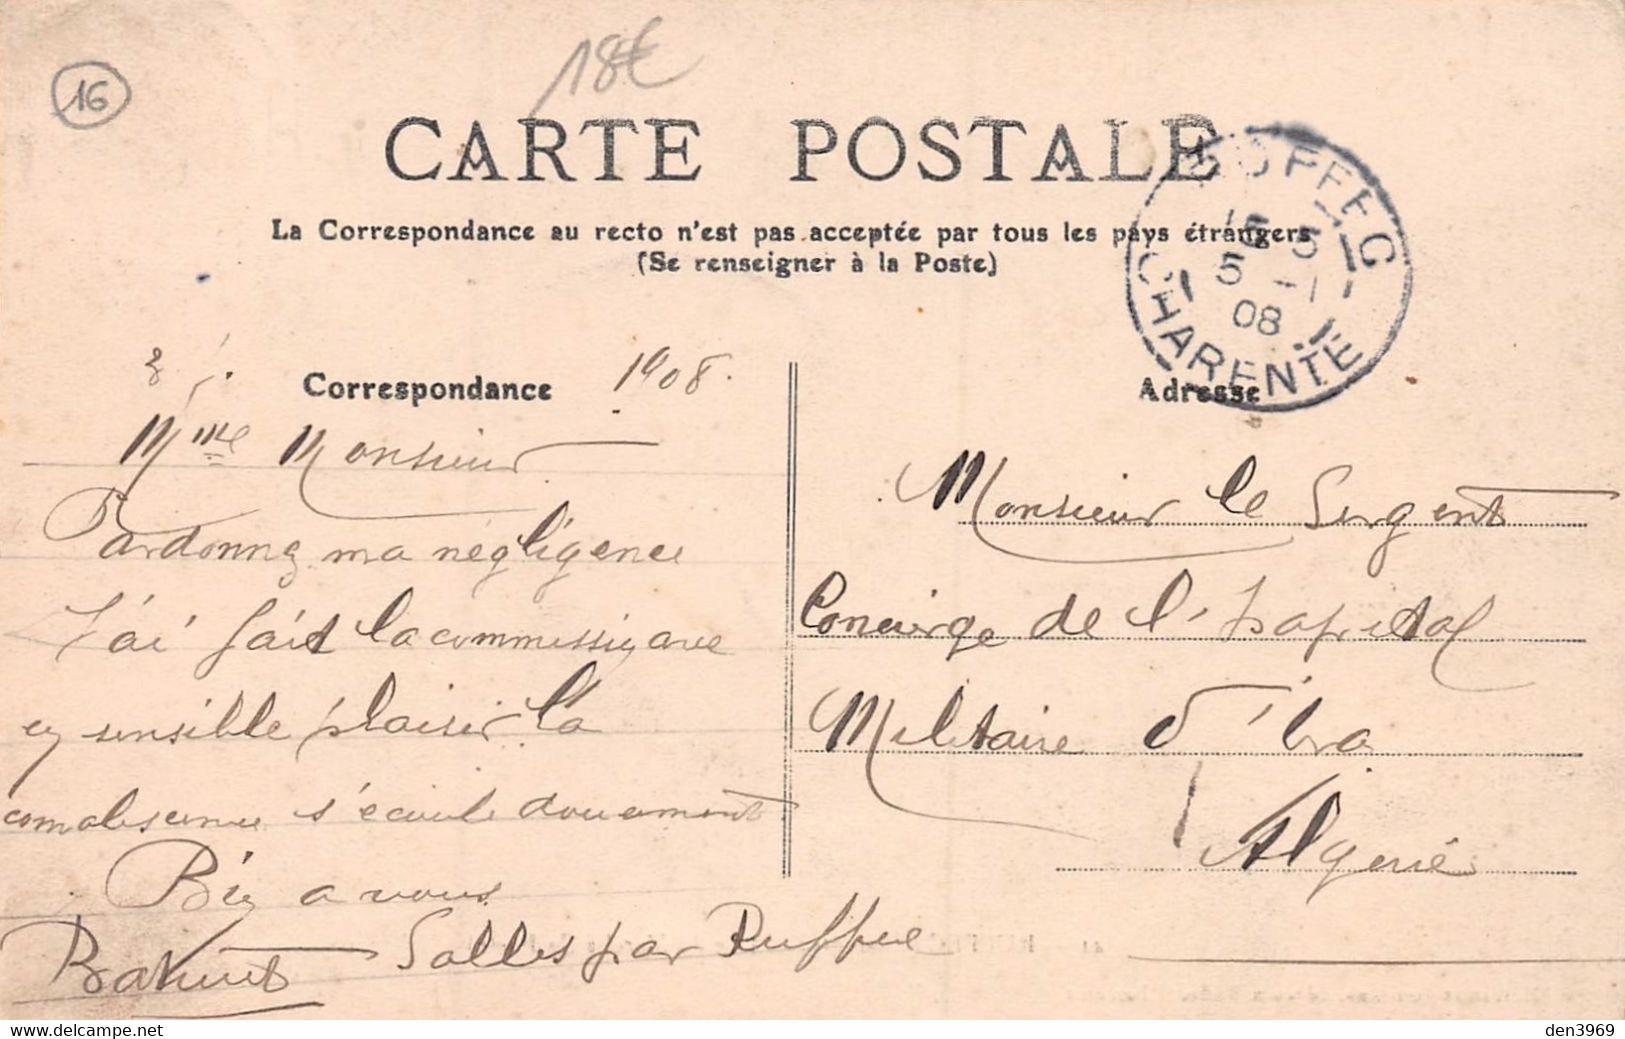 16
18€
CARTE POSTALE
La Correspondance au recto n'est pas acceptée par tous les pays étrangers
(Se renseigner à la Poste)
RUFFEC
5 -1
08
CHARENTE
Correspondance 1908.
Mme Monsieur
Pardonnez ma négligence
J'ai fait la commission avec
en sensible plaisir la
s'écoule doucement
Bien a vous
Salles par Ruffec
Adresse
Monsieur le Sergent
Concierge de l'hopital
Militaire d'
Algerie
den3969